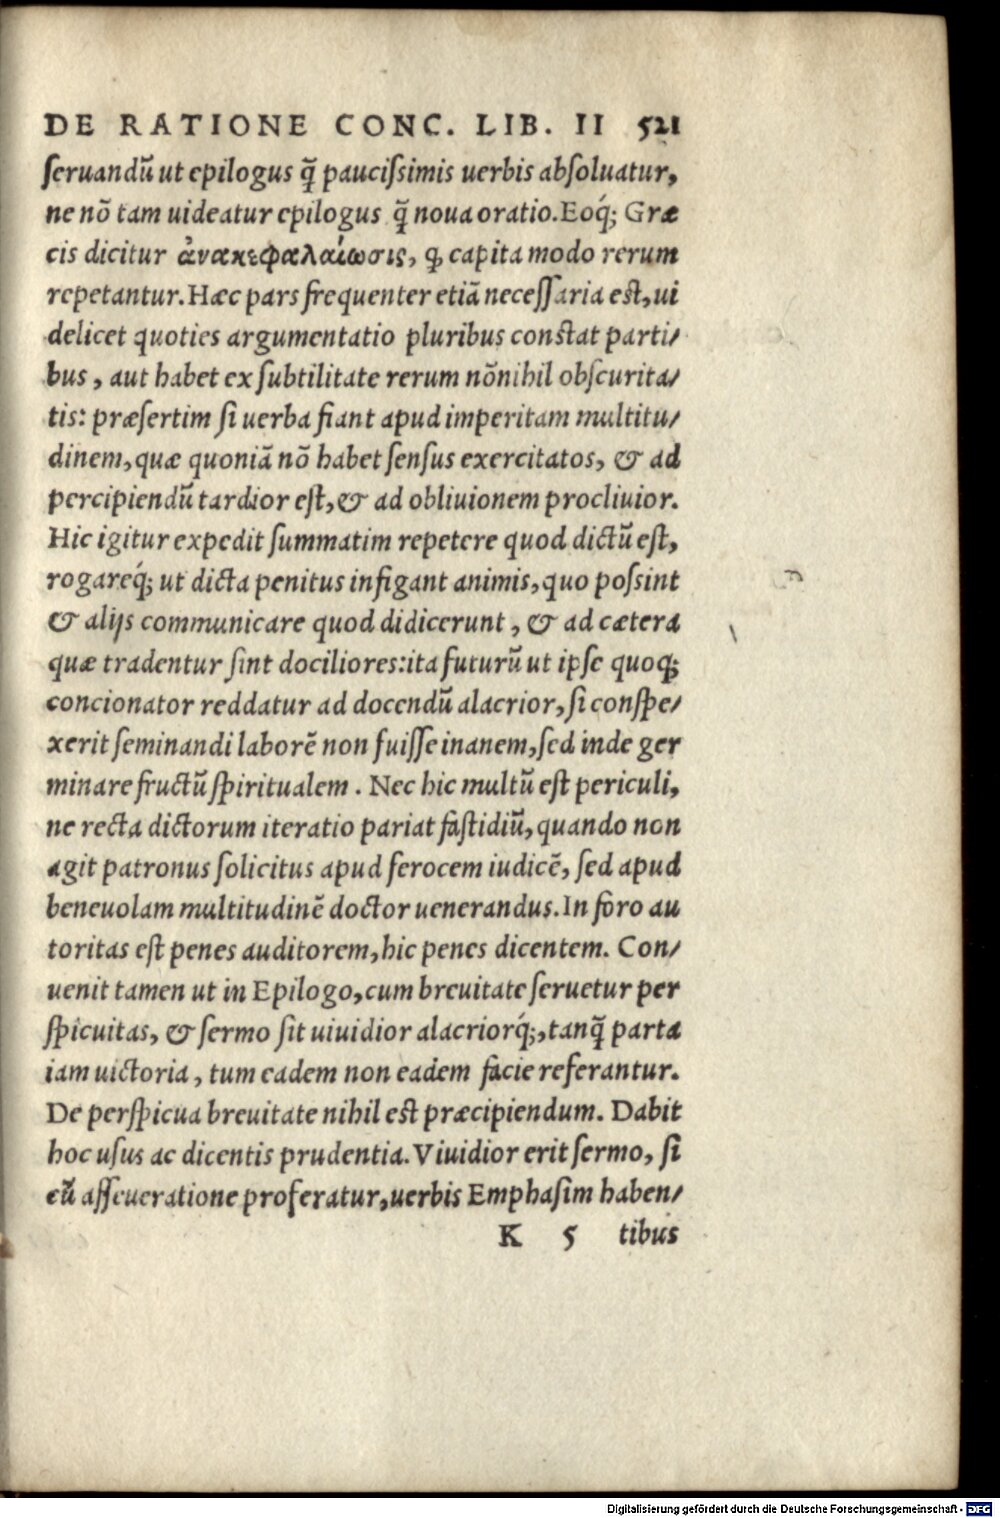 DE RATIONE CONC. LIB. II 521
ſeruandũ ut epilogus q̃ pauciſsimis uerbis abſoluatur,
ne nõ tam uideatur epilogus q̃ noua oratio. Eoq́; Græ
cis dicitur ἀνακεφαλαίωσις, ꝙ capita modo rerum
repetantur. Hæc pars frequenter etiã neceſſaria eſt, ui
delicet quoties argumentatio pluribus conſtat parti/
bus, aut habet ex ſubtilitate rerum nõnihil obſcurita/
tis: præſertim ſi uerba fiant apud imperitam multitu/
dinem, quæ quoniã nõ habet ſenſus exercitatos, & ad
percipiendũ tardior eſt, & ad obliuionem procliuior.
Hic igitur expedit ſummatim repetere quod dictũ eſt,
rogareq́; ut dicta penitus infigant animis, quo poſsint
& alijs communicare quod didicerunt, & ad cætera
quæ tradentur ſint dociliores: ita futurũ ut ipſe quoq;
concionator reddatur ad docendũ alacrior, ſi conſpe/
xerit ſeminandi laborẽ non fuiſſe inanem, ſed inde ger
minare fructũ ſpiritualem. Nec hic multũ eſt periculi,
ne recta dictorum iteratio pariat faſtidiũ, quando non
agit patronus ſolicitus apud ferocem iudicẽ, ſed apud
beneuolam multitudinẽ doctor uenerandus. In foro au
toritas eſt penes auditorem, hic penes dicentem. Con/
uenit tamen ut in Epilogo, cum breuitate ſeruetur per
ſpicuitas, & ſermo ſit uiuidior alacriorq́;, tanq̃ parta
iam uictoria, tum eadem non eadem facie referantur.
De perſpicua breuitate nihil eſt præcipiendum. Dabit
hoc uſus ac dicentis prudentia. Viuidior erit ſermo, ſi
cũ aſſeueratione proferatur, uerbis Emphaſim haben/
K 5 tibus
Digitalisierung gefördert durch die Deutsche Forschungsgemeinschaft - DFG